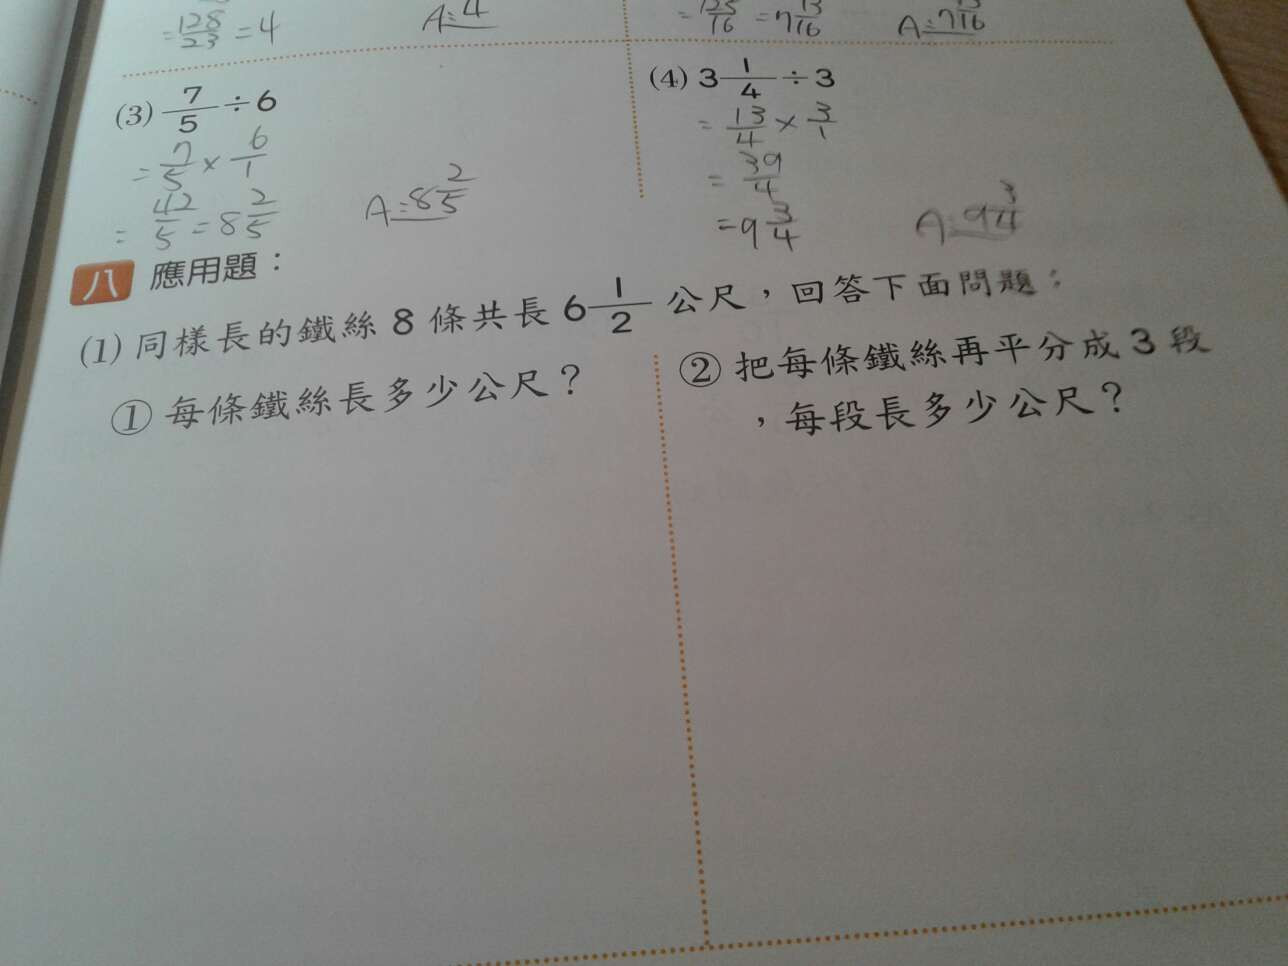 = 128/23 = 4
A:4
= 125/16 = 7 13/16
A:7 13/16
(3) 7/5 ÷ 6
= 7/5 × 6/1
= 42/5 = 8 2/5
A:8 2/5
(4) 3 1/4 ÷ 3
= 13/4 × 3/1
= 39/4
= 9 3/4
A:9 3/4
八 應用題：
(1) 同樣長的鐵絲 8 條共長 6 1/2 公尺，回答下面問題：
① 每條鐵絲長多少公尺？
② 把每條鐵絲再平分成 3 段
，每段長多少公尺？